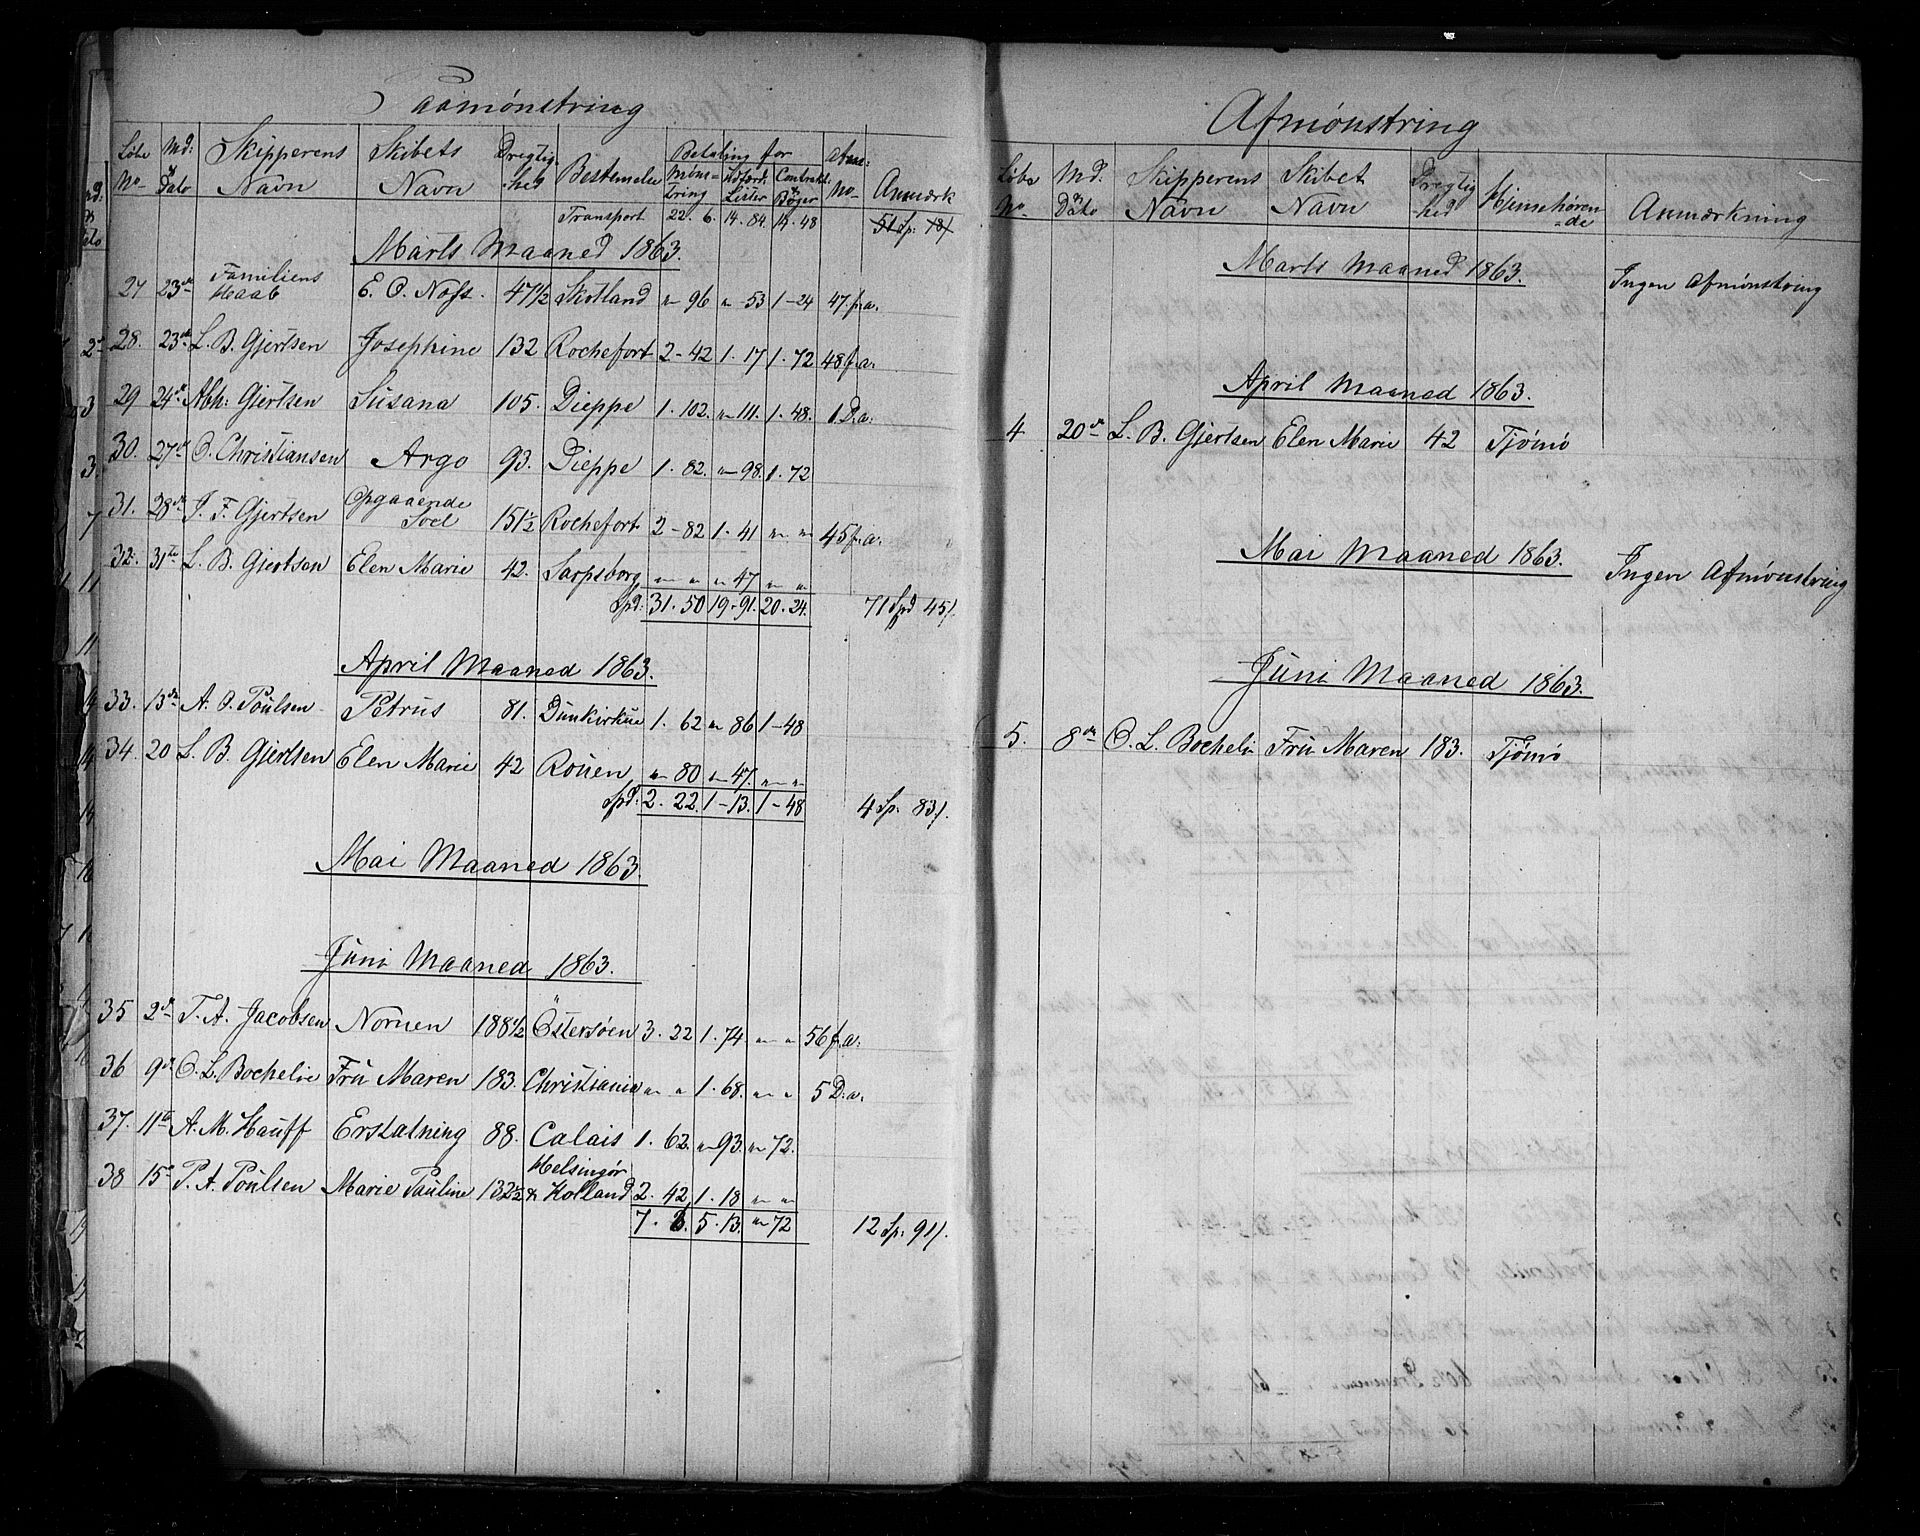 Paamønstring
Løbe No Md: & Dato Skipperens Navn Skibets Navn Dregtighed Bestemelse Betaling for Mønstring Udfærd. Lister Contrakt & Bøger Afm: No Anmærk
Transport 22. 6. 14. 84. 14. 48 51 Sp: 18/
Marts Maaned 1863.
27 23de Familiens Haab E. O. Næss. 47 1/2 Skotland " 96 " 53 1-24 47 f.a.
28. 23de L. B. Gjertsen Josephine 132 Rochefort 2-42 1.17 1.72 48 f.a.
29 24de Abh: Gjertsen Susana 105. Dieppe 1.102. " 111. 1.48. 1 D.a:
30. 27de O. Christiansen Argo 93. Dieppe 1.82. " 98. 1.72
31. 28de J. F. Gjertsen Opgaaende Soel 151 1/2 Rochefort 2-82 1.41 " " 45 f.a.
32. 31te L. B. Gjertsen Elen Marie 42. Sarpsborg " " " 47 " "
Spd: 31.50 19.91. 20.24. 71 Spd 45/.
April Maaned 1863.
33. 13de A. O. Poulsen Petrus 81. Dunkirkue 1.62 " 86 1-48
34. 20 L. B. Gjertsen Elen Marie 42 Rouen " 80 " 47. " "
Spd: 2.22. 1-13. 1-48 4 Sp. 83/.
Mai Maaned 1863.
Juni Maaned 1863.
35 2de T. A. Jacobsen Nornen 188 1/2 Østersøen 3.22 1.74. " " 56 f.a:
36 9de O. L. Bochelie Fru Maren 183. Christiania " " 1.68. " " 5 D.a.
37. 11te A. M. Hauff Erstatning 88. Calais 1.62. " 93. " 72.
38 15de P. A. Poulsen Marie Pauline 132 1/2 Helsingør & Holland 2.42 1.18 " "
7. 8. 5.13. " 72 12 Sp. 91/.
Afmønstring
Løbe No. Md. & Dato Skipperens Navn Skibet Navn Dregtighed Hjemehørende Anmærkning
Marts Maaned 1863. Ingen Afmønstring
April Maaned 1863.
4 20de L. B. Gjertsen Elen Marie 42 Tjømø
Mai Maaned 1863. Ingen Afmønstring
Juni Maaned 1863.
5. 8de O. L. Bochelie Fru Maren 183. Tjømø